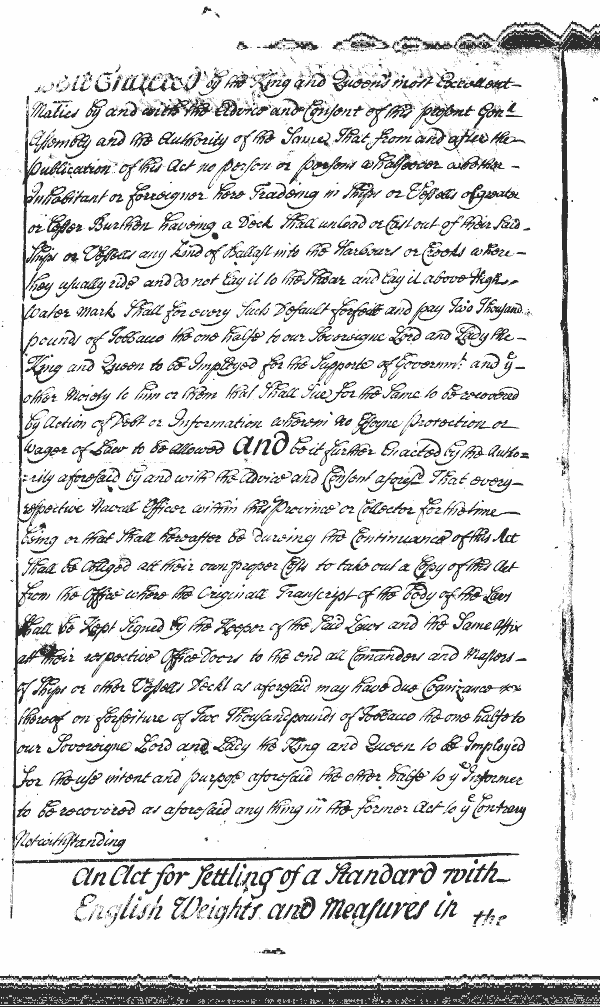 Be it Enacted by the King and Queens most Excellent
Maties by and with the Advice and Consent of this present Genll
Assembly and the Authority of the Same That from and after the
Publication of this Act no person or persons whatsoever whether
Inhabitant or forreigner here Tradeing in Ships or Vessells of greater
or lesser Burthen haveing a Deck Shall unload or Cast out of their Said
Ships or Vessells any kind of Ballast into the Harbours or Creeks where
they usually ride and do not Lay it to the Shoar and lay it above High
Water mark Shall for every Such Default forfeit and pay Two Thousand
pounds of Tobbacco the one halfe to our Sovereigne Lord and Lady the
King and Queen to be Imployed for the Supporte of Governmt and ye
other Moiety to him or them that Shall Sue for the Same to be recovered
by Action of Debt or Information wherein no Essoyne Protection or
Wager of Law to be allowed And be it further Enacted by the Autho=
=rity aforesaid by and with the Advice and Consent aforesd That every
respective Navall Officer within this Province or Collector for the time
being or that Shall hereafter be dureing the Continuance of this Act
Shall be Obliged att their own proper Costs to take out a Copy of this Act
from the Office where the Originall Transcript of the body of the Laws
Shall be Kept Signed by the Keeper of the Said Laws and the Same Affix
att their respective Office Doors to the end all Comanders and Masters
of Ships or other Vessells Deckt as aforesaid may have due Cognizance
thereof on forfeiture of Two Thousand pounds of Tobbacco the one halfe to
our Sovereigne Lord and Lady the King and Queen to be Imployed
for the use intent and purpose aforesaid the other halfe to ye Informer
to be recovered as aforesaid any thing in the former Act to ye Contrary
Notwithstanding
An Act for Settling of a Standard with
English Weights and Measures in the